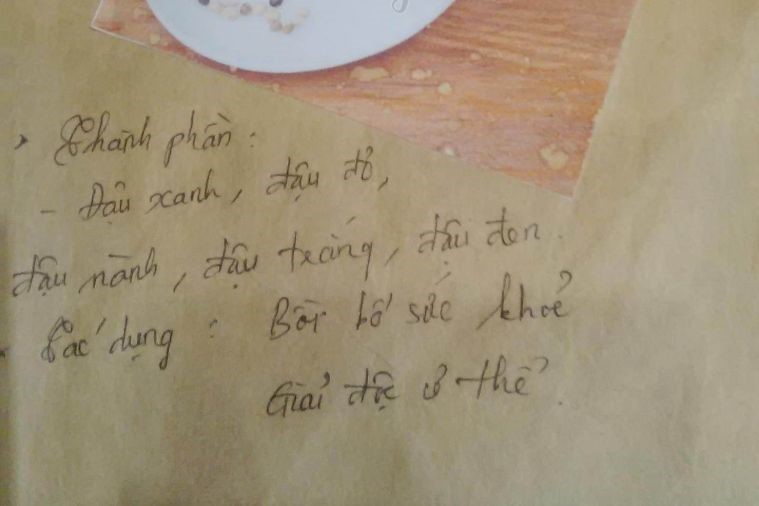 Thành phần:
- Đậu xanh, đậu đỏ,
đậu nành, đậu trắng, đậu đen.
- Tác dụng : Bồi bổ sức khoẻ
Giải độc cơ thể.